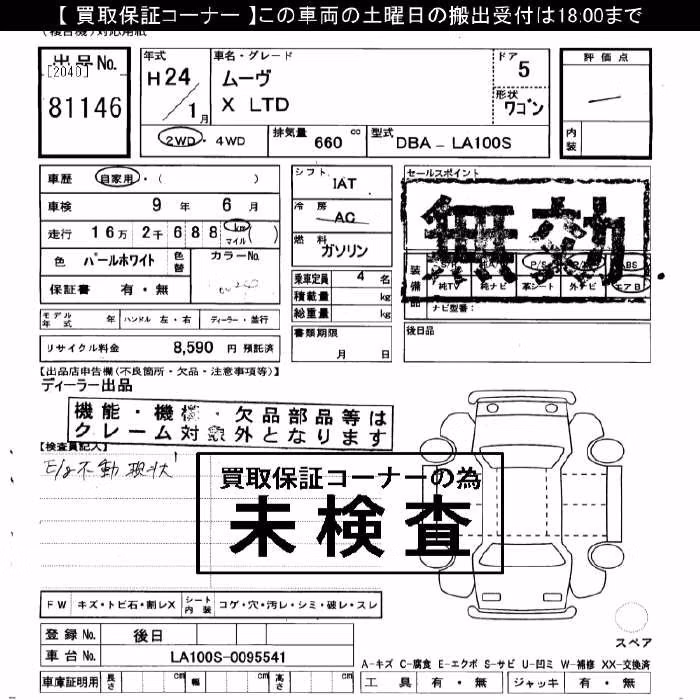 【 買取保証コーナー 】この車両の土曜日の搬出受付は18:00まで
(複合機)対応用紙
出品No.
[2040]
81146
年式
H24/1月
車名・グレード
ムーヴ
X LTD
ドア
5
形状
ワゴン
評価点
内装
2WD・4WD
排気量 660 cc
型式 DBA - LA100S
車歴 自家用・( )
車検 9年 6月
走行 16万 2千 688 km マイル ( )
色 パールホワイト 色替 カラーNo.
保証書 有・無
モデル年式 年 ハンドル 左・右 ディーラー・並行
リサイクル料金 8,590 円 預託済
シフト
IAT
冷房
AC
燃料
ガソリン
乗車定員 4 名
積載量 kg
総重量 kg
書類期限
月 日
セールスポイント
無効
装備品
P/S ABS
純TV 純ナビ 革シート 外ナビ エアB
ナビ型番:
後日品
【出品店申告欄(不良箇所・欠品・注意事項等)】
ディーラー出品
機能・機構・欠品部品等は
クレーム対象外となります
【検査員記入】
E/g不動 現状
買取保証コーナーの為
未検査
FW キズ・トビ石・割レX シート内装 コゲ・穴・汚レ・シミ・破レ・スレ
登録No. 後日
車台No. LA100S-0095541
車庫証明用 長さ cm 幅 cm 高さ cm
スペア
A-キズ C-腐食 E-エクボ S-サビ U-凹ミ W-補修 XX-交換済
工具 有・無 ジャッキ 有・無